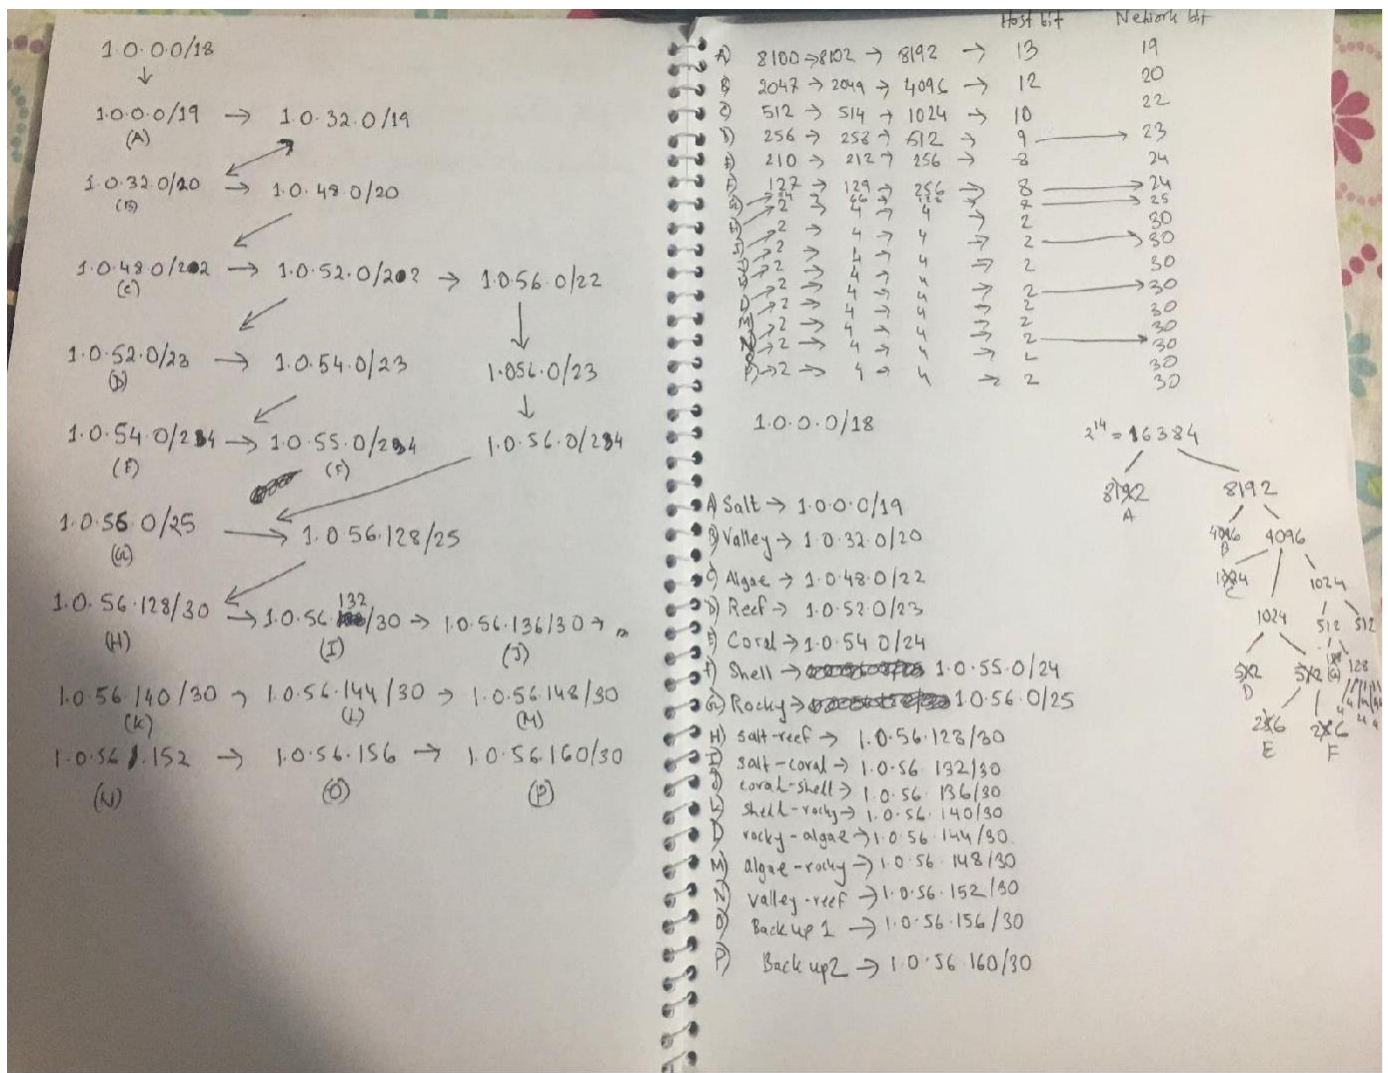 1.0.0.0/18
↓
1.0.0.0/19 → 1.0.32.0/19
(A)
1.0.32.0/20 → 1.0.48.0/20
(B)
1.0.48.0/22 → 1.0.52.0/22 → 1.0.56.0/22
(C)
1.0.52.0/23 → 1.0.54.0/23 1.056.0/23
(D)
1.0.54.0/24 → 1.0.55.0/24 1.0.56.0/24
(E) (F)
1.0.56.0/25 → 1.0.56.128/25
(G)
1.0.56.128/30 → 1.0.56.132/30 → 1.0.56.136/30 →
(H) (I) (J)
1.0.56.140/30 → 1.0.56.144/30 → 1.0.56.148/30
(K) (L) (M)
1.0.56.152 → 1.0.56.156 → 1.0.56.160/30
(N) (O) (P)
Host bit Network bit
A) 8100 → 8102 → 8192 → 13 19
B) 2047 → 2049 → 4096 → 12 20
C) 512 → 514 → 1024 → 10 22
D) 256 → 258 → 512 → 9 → 23
E) 210 → 212 → 256 → 8 24
F) 127 → 129 → 256 → 8 → 24
G) → 25
H) → 2 → 4 → 4 → 2 30
I) → 2 → 4 → 4 → 2 → 30
J) → 2 → 4 → 4 → 2 30
2 → 4 → 4 → 2 → 30
L) → 2 → 4 → 4 → 2 30
M) → 2 → 4 → 4 → 2 30
2 → 4 → 4 → 2 → 30
2 → 4 → 4 → 2 30
P) → 2 → 4 → 4 → 2 30
1.0.0.0/18
2^14 = 16384
8192 8192
A
4096 4096
B
1024 1024
C
1024 512 512
512 512 128
D
256 256
E F
A) Salt → 1.0.0.0/19
B) Valley → 1.0.32.0/20
C) Algae → 1.0.48.0/22
D) Reef → 1.0.52.0/23
E) Coral → 1.0.54.0/24
F) Shell → 1.0.55.0/24
G) Rocky → 1.0.56.0/25
H) salt-reef → 1.0.56.128/30
I) salt-coral → 1.0.56.132/30
J) coral-shell → 1.0.56.136/30
K) shell-rocky → 1.0.56.140/30
L) rocky-algae → 1.0.56.144/30
M) algae-rocky → 1.0.56.148/30
N) valley-reef → 1.0.56.152/30
O) Back up 1 → 1.0.56.156/30
P) Back up2 → 1.0.56.160/30